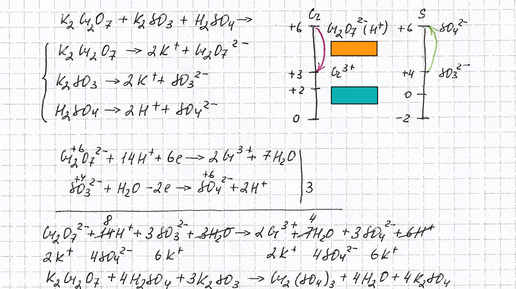 K₂Cr₂O₇ + K₂SO₃ + H₂SO₄ →
K₂Cr₂O₇ → 2K⁺ + Cr₂O₇²⁻
K₂SO₃ → 2K⁺ + SO₃²⁻
H₂SO₄ → 2H⁺ + SO₄²⁻
Cr
+6 Cr₂O₇²⁻ (H⁺)
+3 Cr³⁺
+2
0
S
+6 SO₄²⁻
+4 SO₃²⁻
0
-2
+6
Cr₂O₇²⁻ + 14H⁺ + 6e → 2Cr³⁺ + 7H₂O
+4 +6
SO₃²⁻ + H₂O - 2e → SO₄²⁻ + 2H⁺ | 3
8 4
Cr₂O₇²⁻ + 14H⁺ + 3SO₃²⁻ + 3H₂O → 2Cr³⁺ + 7H₂O + 3SO₄²⁻ + 6H⁺
2K⁺ 4SO₄²⁻ 6K⁺ 2K⁺ 4SO₄²⁻ 6K⁺
K₂Cr₂O₇ + 4H₂SO₄ + 3K₂SO₃ → Cr₂(SO₄)₃ + 4H₂O + 4K₂SO₄